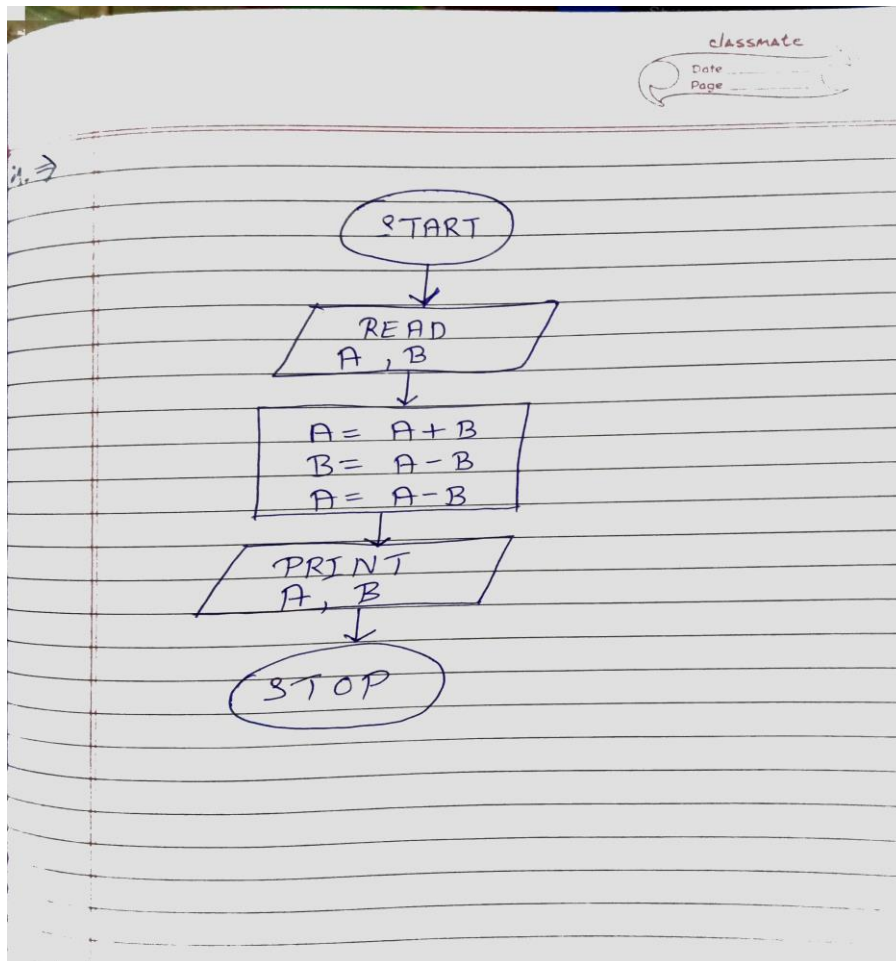 classmate
Date
Page
START
READ
A , B
A = A + B
B = A - B
A = A - B
PRINT
A, B
STOP